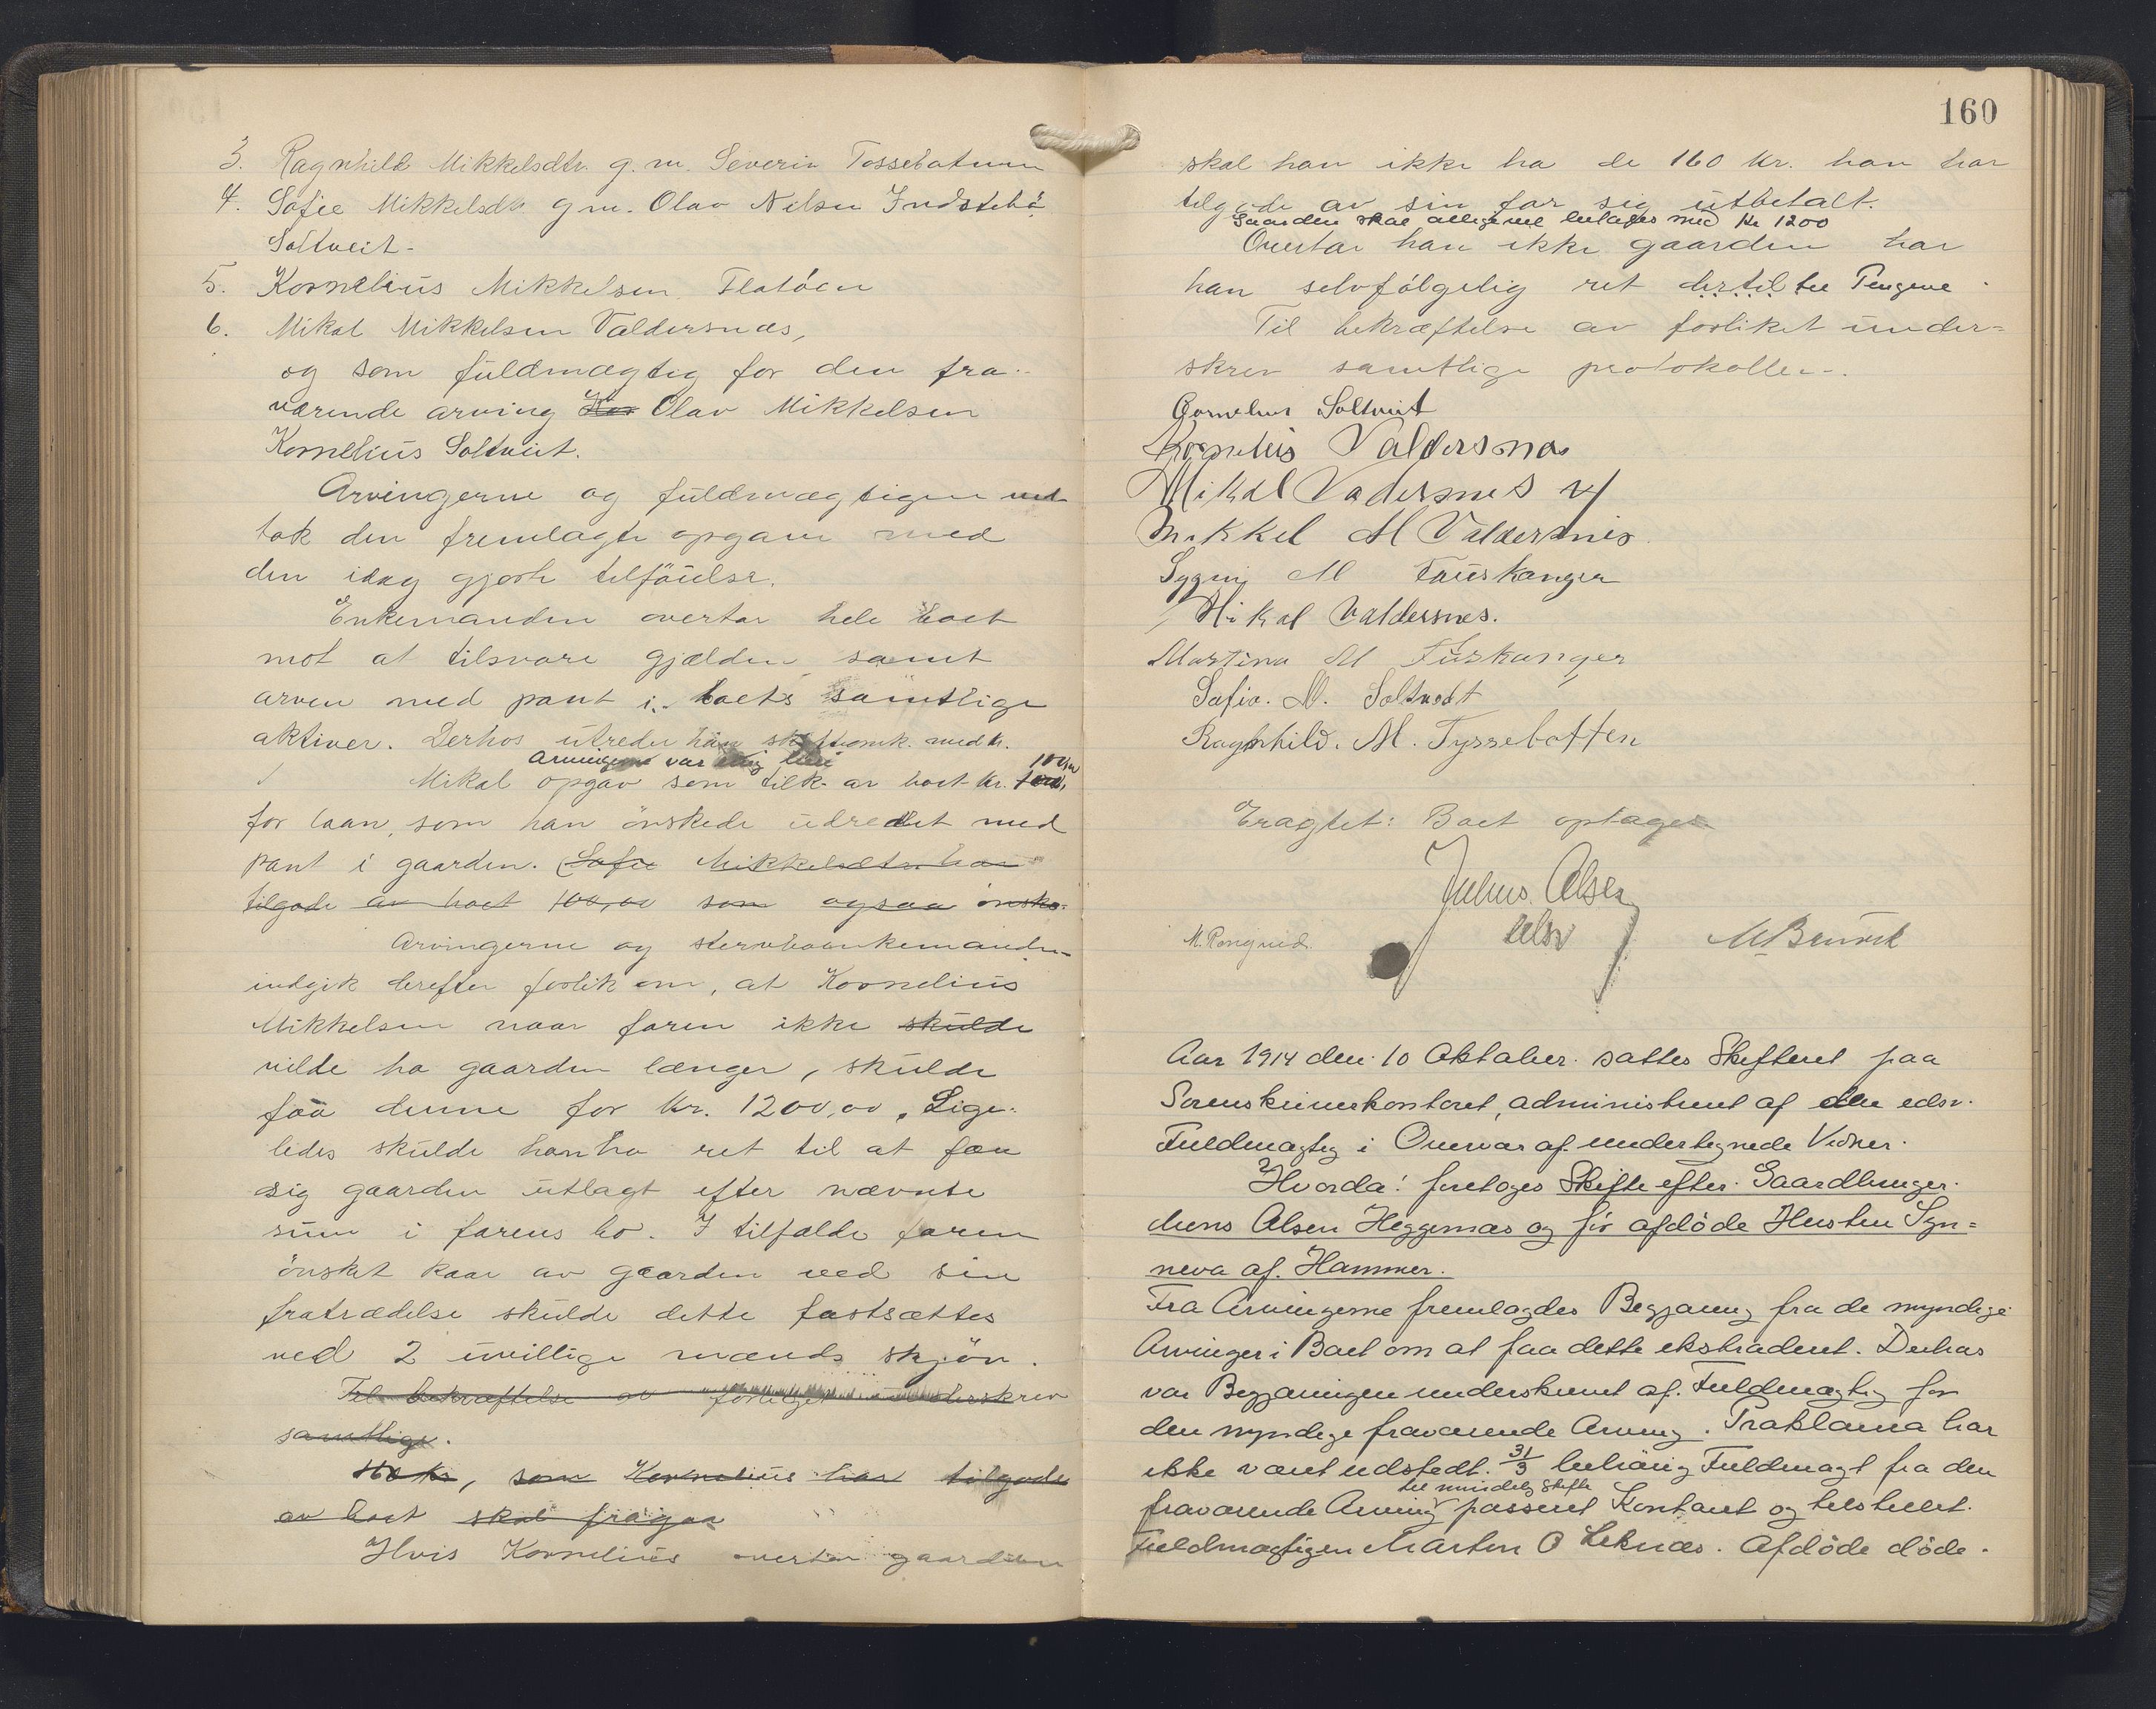 3. Ragnhild Mikkelsdtr. g. m. Severin Tossebotnum
4. Sofie Mikkelsdtr gm. Olav Nilsen Indstebö
Soltveit.
5. Kornelius Mikkelsen Flatöen
6. Mikal Mikkelsen Valdersnæs,
og som fuldmægtig for den fra-
værende arving Kor Olav Mikkelsen
Kornelius Soltveit.
Arvingerne og fuldmægtigen ved-
tok den fremlagte opgave med
den idag gjorte tilföielse.
Enkemanden overtar hele boet
mot at tilsvare gjælden samt
arven med pant i boets samtlige
aktiver. Derhos utreder han skifteomk. med kr.
Arvingerne var enig heri
Mikal opgav som tilk. av boet kr. 100,00
for laan, som han önskede udredet med
pant i gaarden. Sofie Mikkelsdtr. har
tilgode av boet 100,00 som ogsaa önske-
Arvingerne og stervboenkemanden
indgik derefter forlik om, at Kornelius
Mikkelsen naar faren ikke skulde
vilde ha gaarden længer, skulde
faa denne for kr. 1200,00. Lige-
ledes skulde han ha ret til at faa
sig gaarden utlagt efter nævnte
sum i farens bo. I tilfælde faren
önsket kaar av gaarden ved sin
fratrædelse skulde dette fastsættes
ved 2 uvillige mænds skjön.
Til bekræftelse av forliget underskrev
samtlige.
160 kr, som Kornelius har tilgode
av boet skal fragaa
Hvis Kornelius overtar gaarden
160
skal han ikke ha de 160 kr. han har
tilgode av sin far sig utbetalt.
Gaarden skal alligevel betales med Kr 1200
Overtar han ikke gaarden har
han selvfölgelig ret dertil til Pengene
Til bekræftelse av forliket under-
skrev samtlige protokollen.
Cornelius Soltveit
Kornelius Valdersnes
Mikal Valdersnes
Mikkel M Valdersnes
M Fauskanger
Mikal Valdersnes.
Martina M Fuskanger
Sofie. M. Soltvedt
Ragnhild. M. Tyssebotten
Eragtet: Boet optages
Julius Olsen
edsv
M. Rongved.
Aar 1914 den 10 Oktober sattes Skifteret paa
Sorenskriverkontoret, administreret af den edsv.
Fuldmægtig i Overvær af undertegnede Vidner.
Hvorda: foretoges Skifte efter Gaardbruger
Mons Olsen Heggernæs og för afdöde Hustru Syn-
neva af Hammer.
Fra Arvingerne fremlagdes Begjæring fra de myndige
Arvinger i Boet om at faa dette ekstraderet. Derhos
var Begjæringen underskrevet af Fuldmægtig for
den myndige fraværende Arving. Proklama har
ikke været udstedt. 31/3 behörig Fuldmagt fra den
til mindelig Skifte
fraværende Arving passeret Kontoret og tilstillet
Fuldmægtigen Martin O Leknæs. Afdöde döde